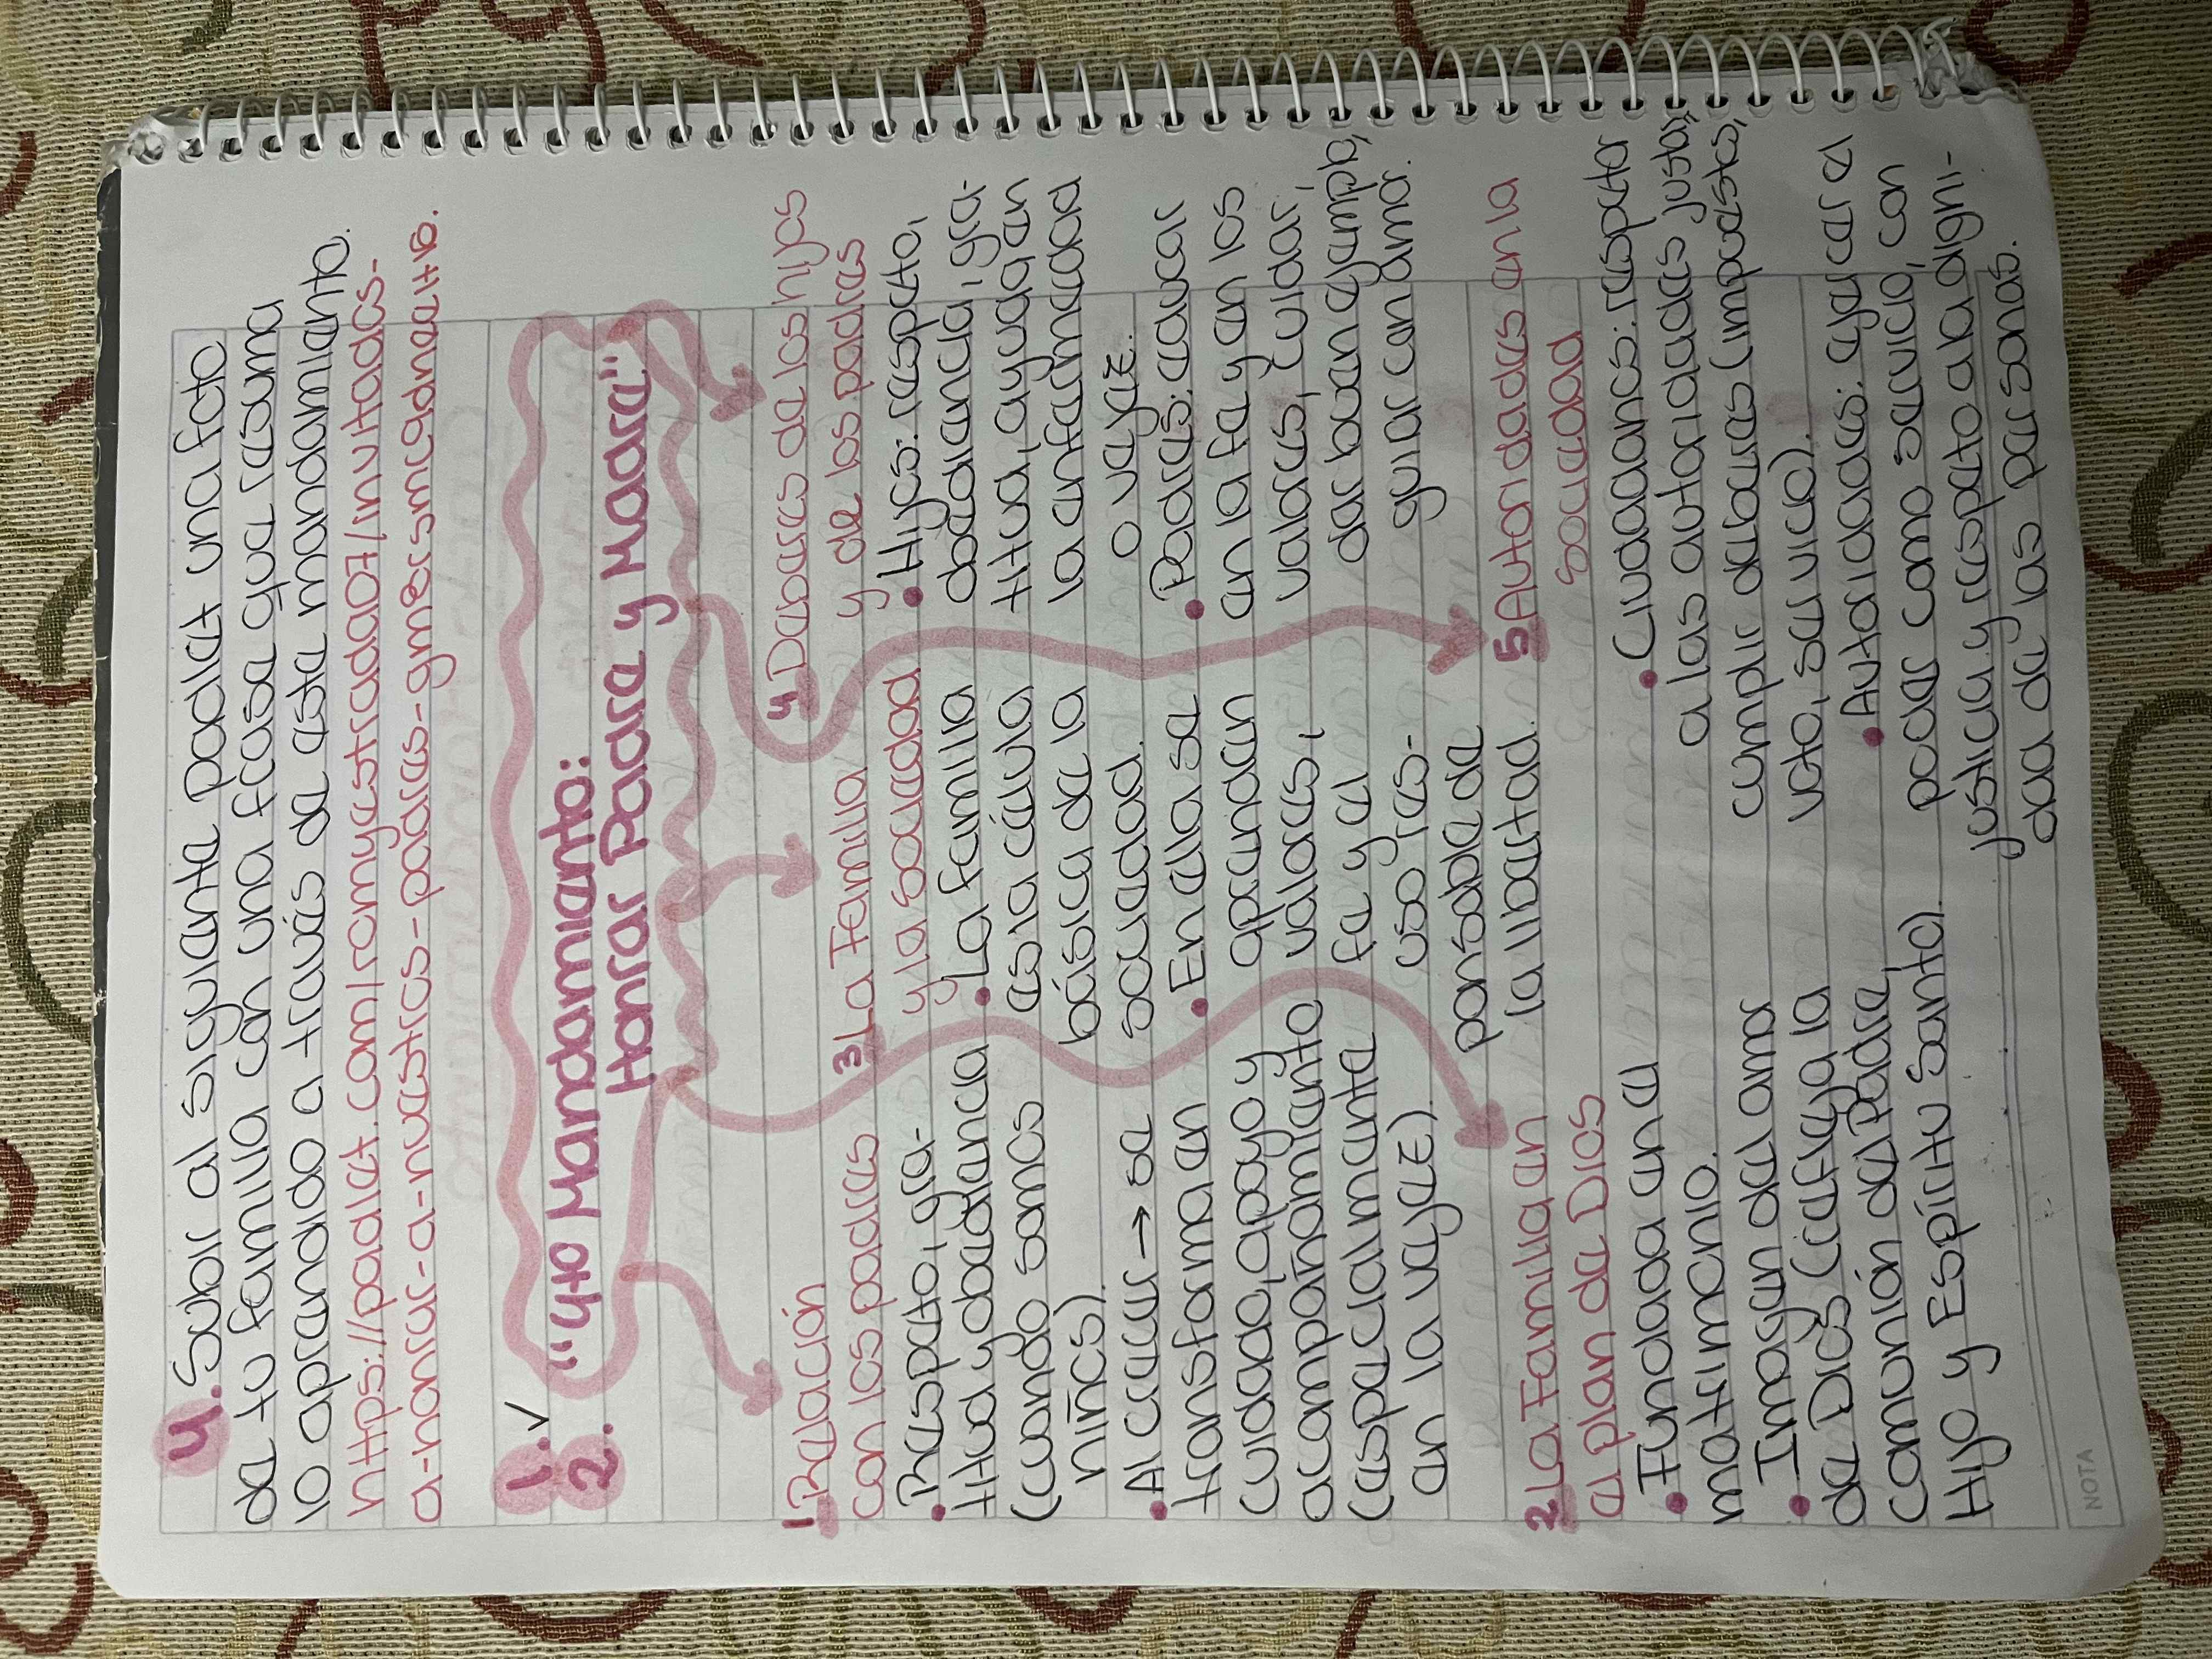 4. Subir al siguiente padlet una foto
de tu familia con una frase que resuma
lo aprendido a través de este mandamiento.
https://padlet.com/romyestrada07/invitados-
1. V
2. "4to Mandamiento:
Honrar Padre y Madre"
1. Relación
con los padres
• Respeto, gra-
titud y obediencia
(cuando somos
niños).
• Al crecer → se
transforma en
cuidado, apoyo y
acompañamiento
(especialmente
en la vejez)
2. La Familia en
el plan de Dios
• Fundada en el
matrimonio.
• Imagen del amor
de Dios (refleja la
comunión del Padre,
Hijo y Espíritu Santo).
3. La Familia
y la sociedad
• La familia
es la célula
básica de la
sociedad.
• En ella se
aprenden
valores,
fe y el
uso res-
ponsable de
la libertad.
4. Deberes de los hijos
y de los padres
• Hijos: respeto,
obediencia, gra-
titud, ayuda en
la enfermedad
o vejez.
• Padres: educar
en la fe y en los
valores, cuidar,
dar buen ejemplo,
guiar con amor.
5 Autoridades en la
sociedad
• Ciudadanos: respetar
a las autoridades justas,
cumplir deberes (impuestos,
voto, servicio).
• Autoridades: ejercer el
poder como servicio, con
justicia y respeto a la digni-
dad de las personas.
NOTA